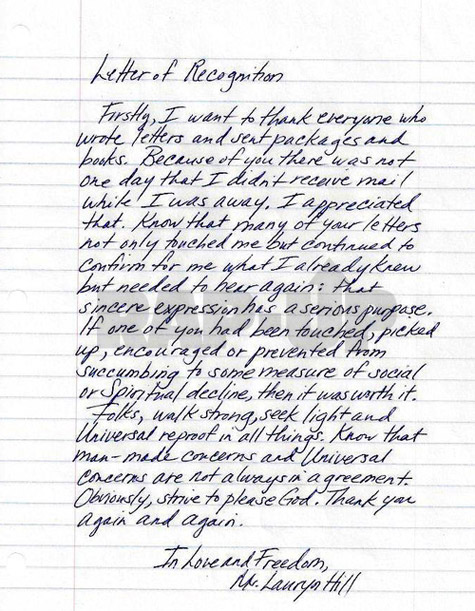 Letter of Recognition
Firstly, I want to thank everyone who
wrote letters and sent packages and
books. Because of you there was not
one day that I didn't receive mail
while I was away. I appreciated
that. Know that many of your letters
not only touched me but continued to
confirm for me what I already knew
but needed to hear again: that
sincere expression has a serious purpose.
If one of you had been touched, picked
up, encouraged or prevented from
succumbing to some measure of social
or Spiritual decline, then it was worth it.
Folks, walk strong, seek light and
Universal reproof in all things. Know that
man-made concerns and Universal
concerns are not always in a agreement.
Obviously, strive to please God. Thank you
again and again.
In Love and Freedom,
Ms. Lauryn Hill
RAP-UP